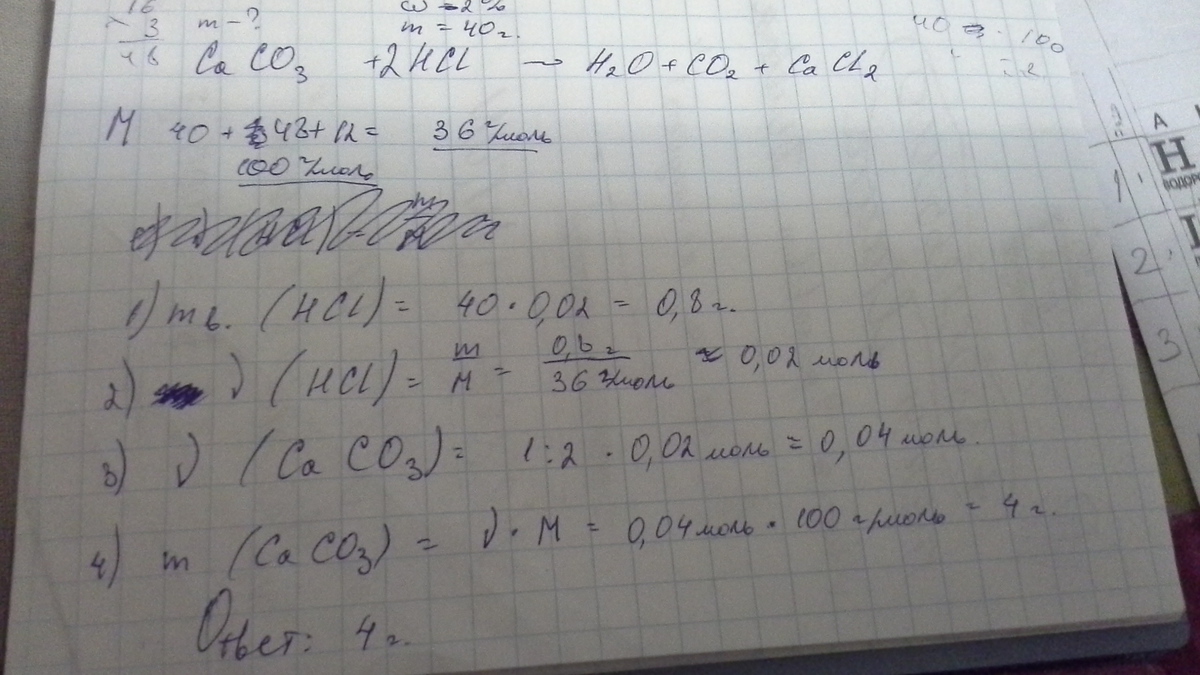 16
3
48
m - ?
ω = 2%
m = 40 г.
40 · 100
: 2
CaCO₃ + 2HCl → H₂O + CO₂ + CaCl₂
M 40 + 48 + 12 = 36 г/моль
100 г/моль
1) m в. (HCl) = 40 · 0,02 = 0,8 г.
2) ν (HCl) = m/M = 0,8 г / 36 г/моль ≈ 0,02 моль
3) ν (CaCO₃) = 1:2 · 0,02 моль = 0,04 моль.
4) m (CaCO₃) = ν · M = 0,04 моль · 100 г/моль = 4 г.
Ответ: 4 г.
А
Н
ВОДОРО
1
2
3